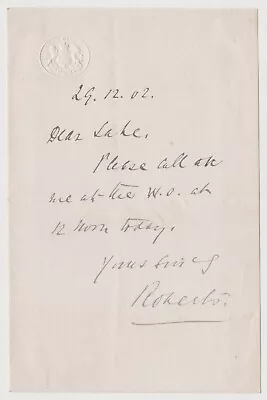 29.12.02.
Dear Lake,
Please call on
me at the W.O. at
12 Noon today.
Yours sincy
Roberts.